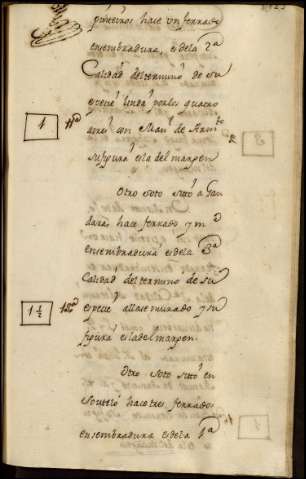 piñeiros hace un ferrado
ensembradura, es dela 2ª
Calidad del termino de su
especie linda por los quatro
aires con Man.l de
1
su figura es la del marxen
Otro soto sito a Gan
daras, hace ferrado y m.o
ensembradura es dela 3ª
Calidad del termino de su
1 1/2
especie allase murado y su
figura es la del marxen
Otro soto sito en
Soutelo hace tres ferrados
ensembradura es dela 1ª